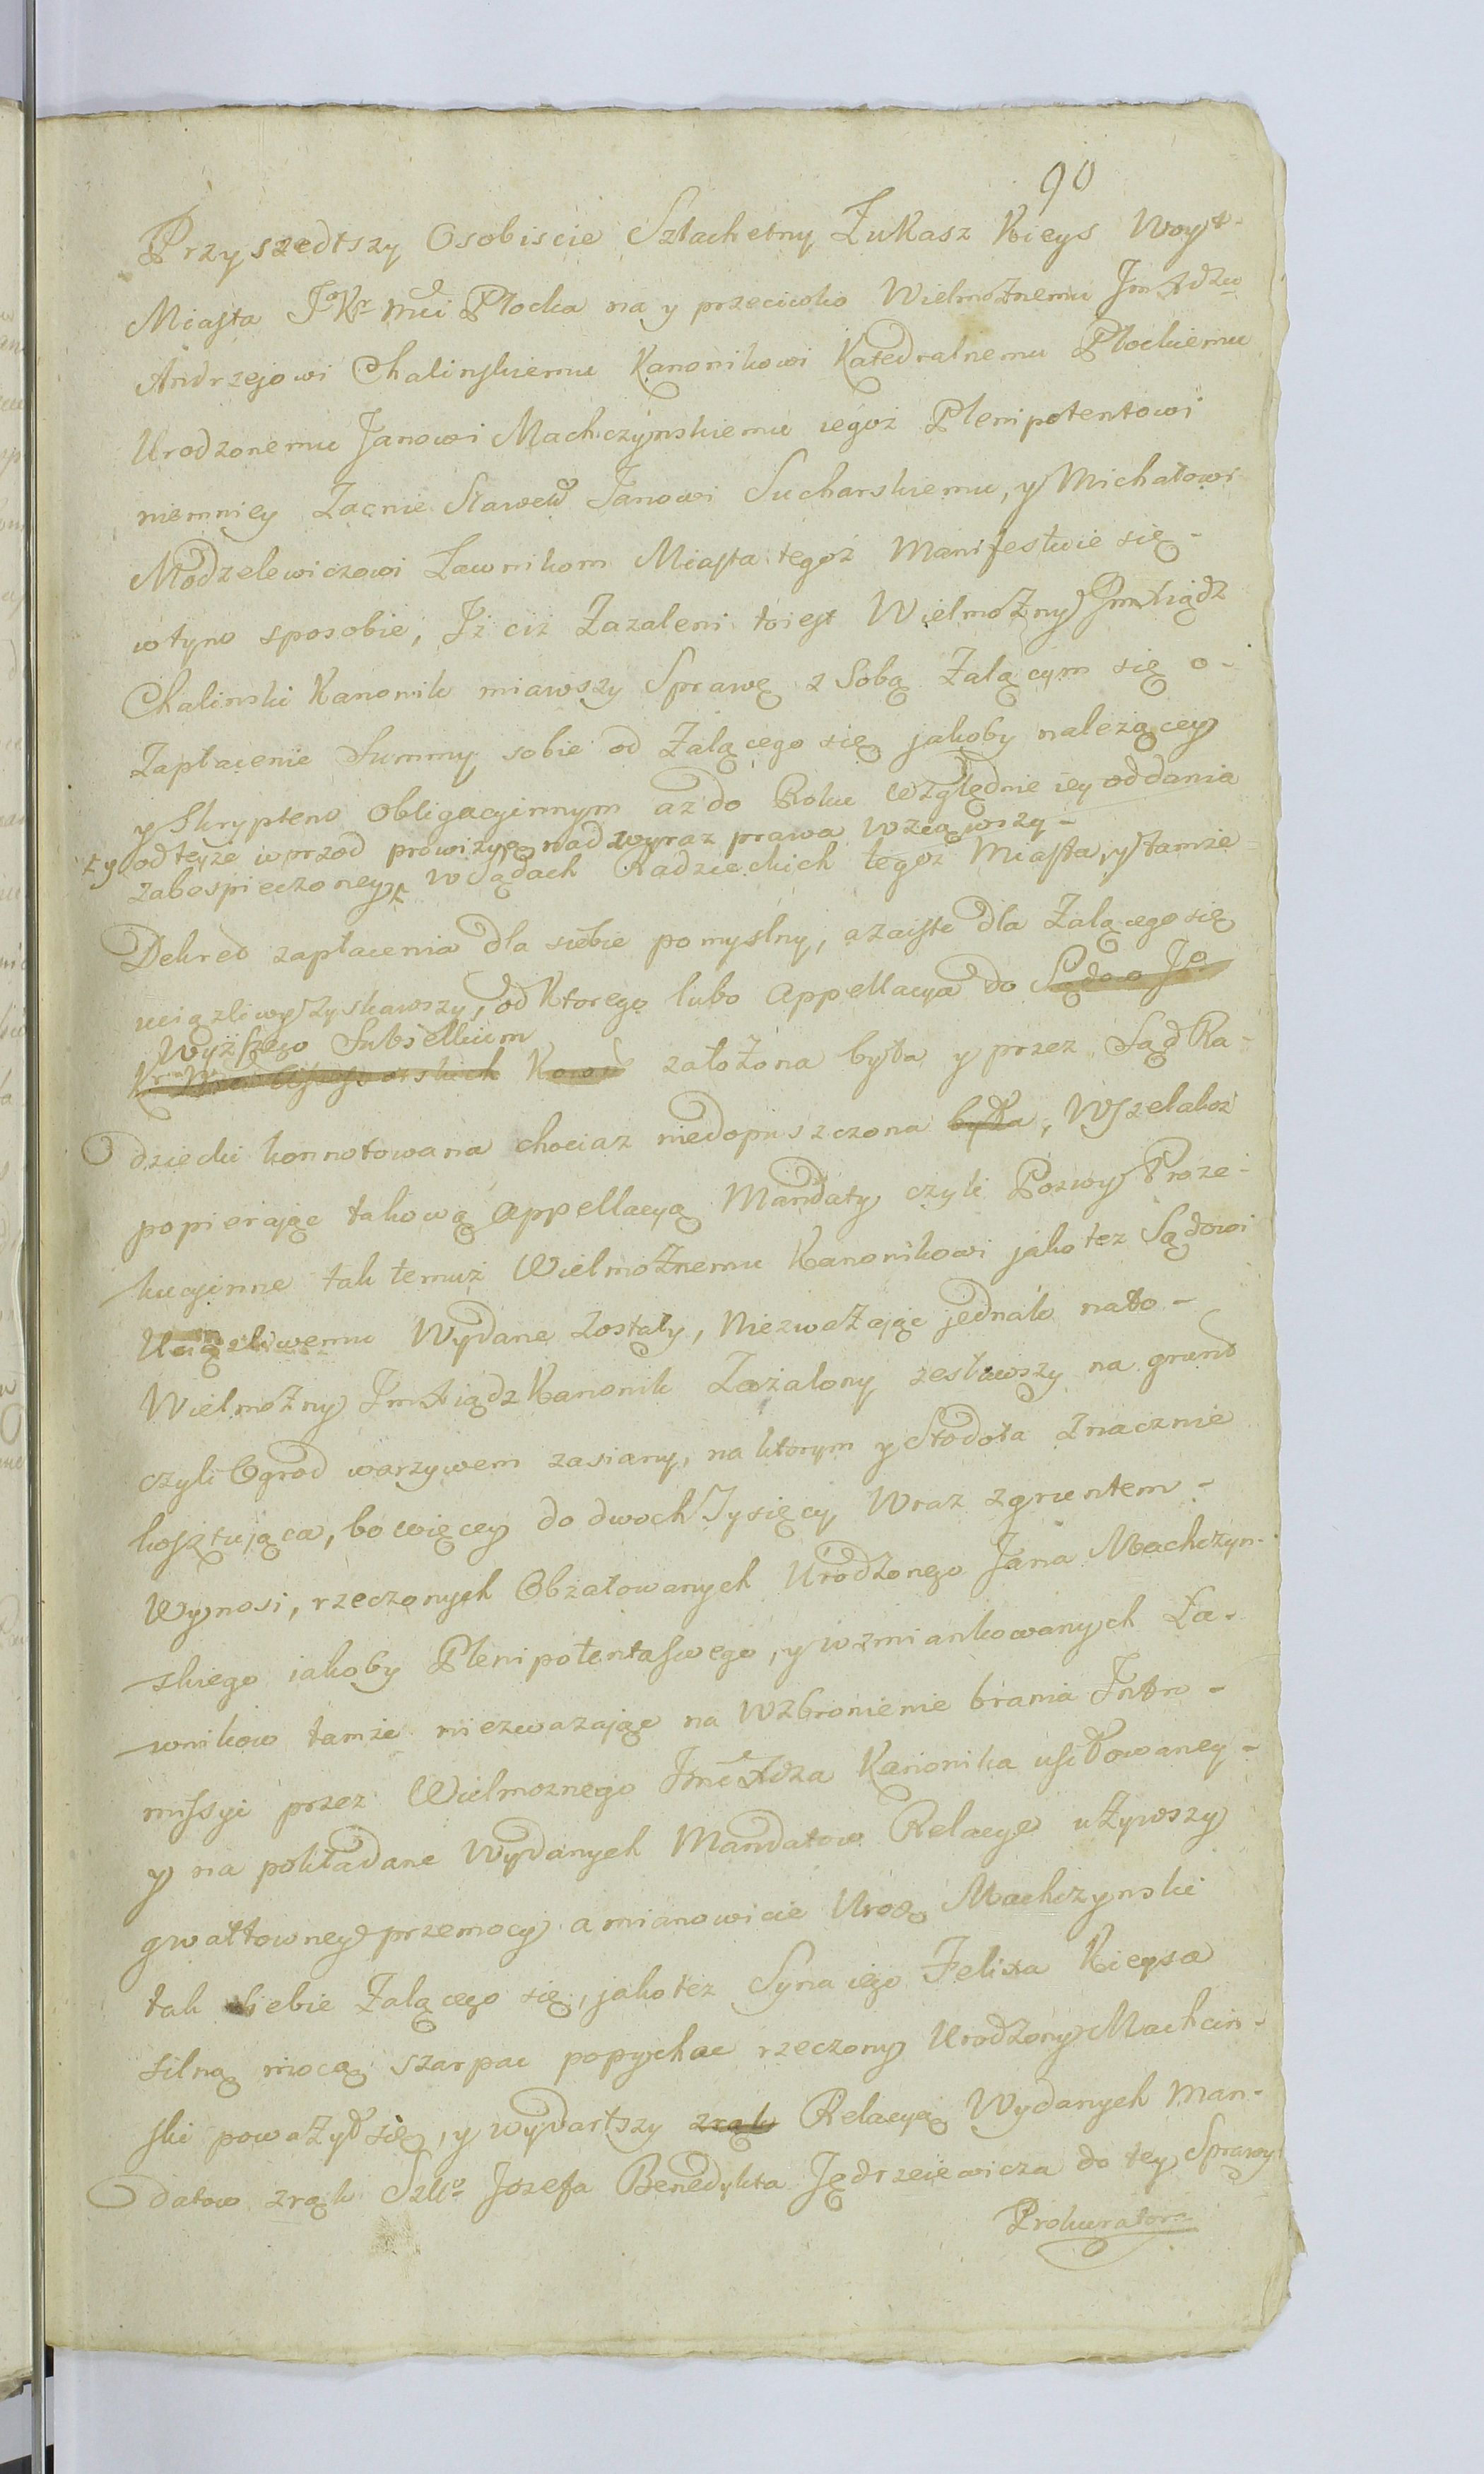 90
Przyszedłszy Osobiscie Szlachetny Łukasz Kieys Woyt-
Miasta JoKr Mci Płocka na y przeciwko Wielmożnemu Jm Xdzu
Andrzejowi Chalinskiemu Kanonikowi Katedralnemu Płockiemu
Urodzonemu Janowi Machczynskiemu iegoz Plenipotentowi
niemniey Zacnie Sławetł Janowi Sucharskiemu, y Michałowi
Modzelewiczowi Ławnikom Miasta tegoż Manifestuie się-
wtym sposobie, Iż ciż Zażaleni toiest Wielmożny Jm Xiądz
Chalinski Kanonik miawszy Sprawę z Sobą Zalącym się o-
Zapłacenie Summy sobie od Zalącego się jakoby należącey
y Skryptem Obligacyinnym aż do Roku względnie iey oddania
zy odteyże wprzod prowizyą nad wyraz prawa wziąwszy-
zabespieczoney w Sądach Radzieckich tegoz Miasta, y tamże
Dekret zapłacenia dla siebie pomyslny, azaiste dla Zalącego się
uciązliwy zyskawszy, od Ktorego lubo Appellacya do Sądow Jo
Wyższego Subsellium
Assessorskich Koron założona była y przez Sąd Ra-
dziecki konnotowana chociaz niedopuszczona była, Wszelakoż
popierając takową Appellacyą Mandaty czyli Pozwy Proze-
kucyinne tak temuż Wielmożnemu Kanonikowi jako tez Sądowi
Uciązliwemu Wydane zostały, Niezważając jednak nato-
Wielmożny Jm Xiądz Kanonik Zażalony zesławszy na grunt
czyli Ogrod warzywem zasiany, na ktorym y Stodoła znacznie
kosztująca, bo więcey do dwoch Tysięcy Wraz zgruntem-
Wynosi, rzeczonych Obżałowanych Urodzonego Jana Machczyn-
skiego iakoby Plenipotenta Swego, y wzmiankowanych Ła-
wnikow tamże niezwazając na Wzbronienie brania Intro-
missyi przez Wielmoznego Jmci Xdza Kanonika usiłowaney-
y na pokładane Wydanych Mandatow Relacye używszy
gwałtowney przemocy amianowicie Urodz Machczynski
tak siebie Zalącego się, jako też Syna iego Felixa Kieysa
silną mocą szarpac popychac rzeczony Urodzony Machcin-
ski poważył się, y wydartszy zrąk Relacyą Wydanych Man-
datow zrąk Szlo Jozefa Benedykta Jędrzeiewicza do tey Sprawy
Prokuratora